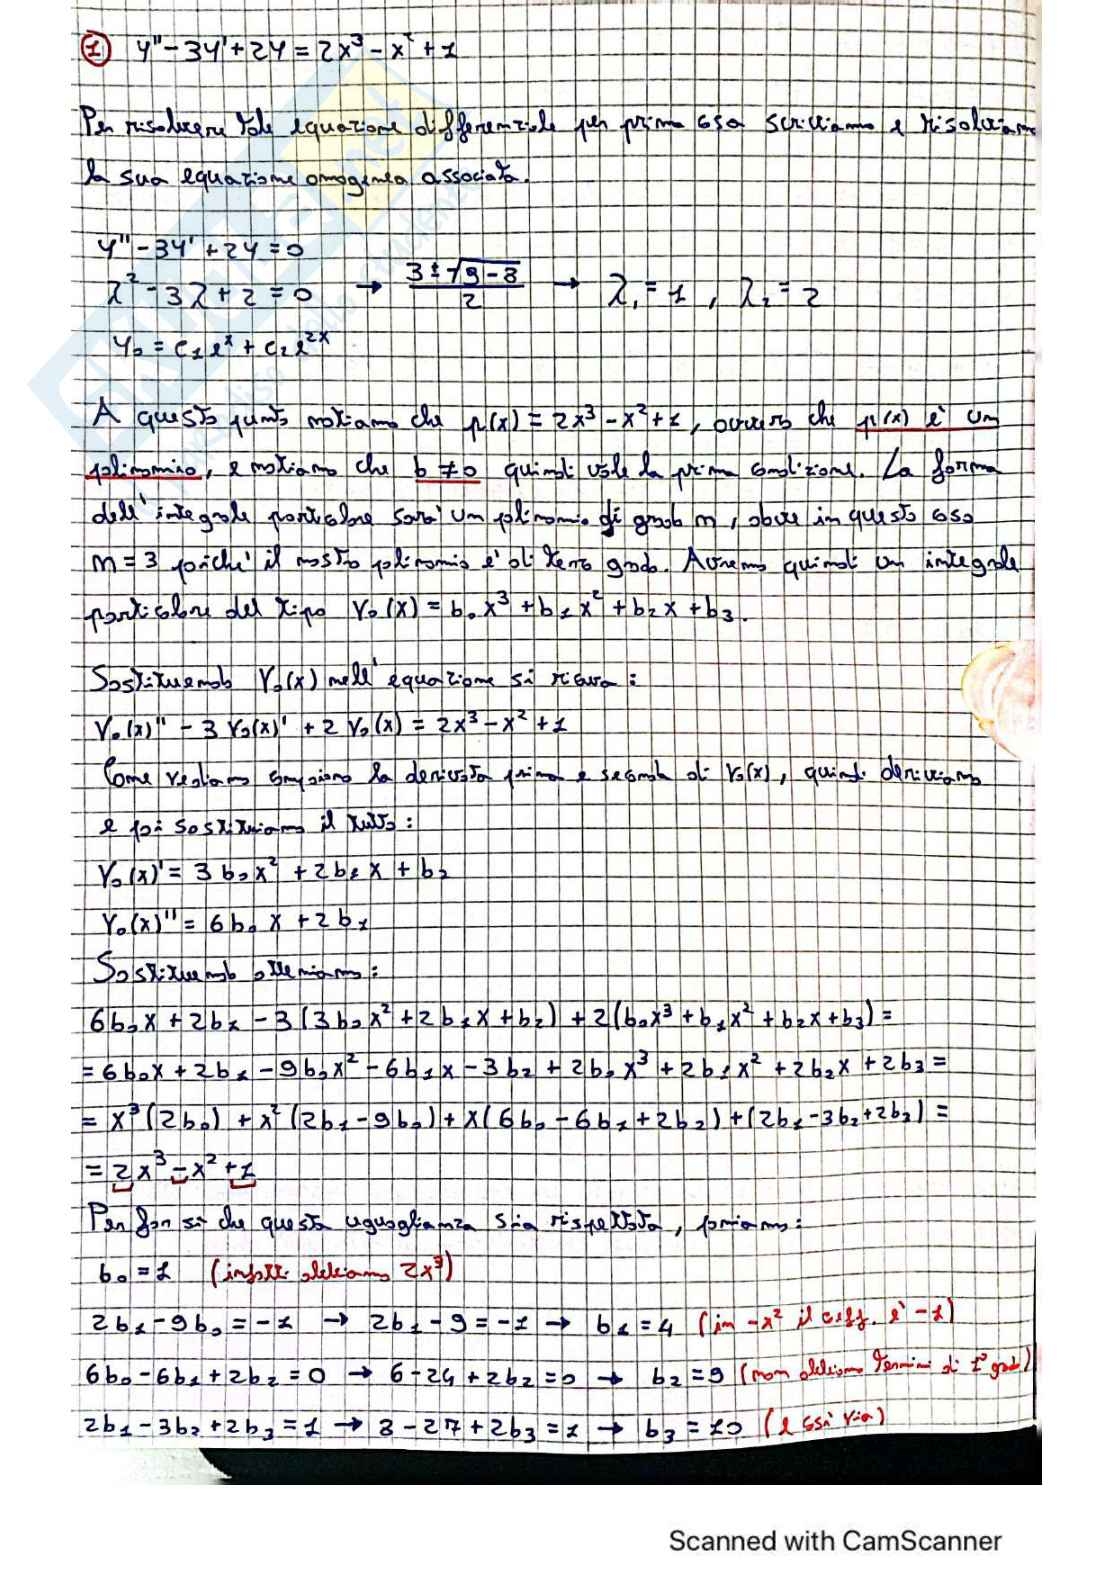 ① y'' - 3y' + 2y = 2x³ - x² + 1
Per risolvere tale equazione differenziale per prima cosa scriviamo e risolviamo
la sua equazione omogenea associata.
y'' - 3y' + 2y = 0
λ² - 3λ + 2 = 0 → (3 ± √(9-8))/2 → λ₁ = 1 , λ₂ = 2
y₀ = c₁eˣ + c₂e²ˣ
A questo punto notiamo che p(x) = 2x³ - x² + 1, ovvero che p(x) è un
polinomio, e notiamo che b ≠ 0 quindi vale la prima condizione. La forma
dell'integrale particolare sarà un polinomio di grado m, dove in questo caso
m = 3 poiché il nostro polinomio è di terzo grado. Avremo quindi un integrale
particolare del tipo V₀(x) = b₀x³ + b₁x² + b₂x + b₃.
Sostituendo V₀(x) nell'equazione si ricava :
V₀(x)'' - 3 V₀(x)' + 2 V₀(x) = 2x³ - x² + 1
Come vediamo compaiono la derivata prima e seconda di V₀(x), quindi deriviamo
e poi sostituiamo il tutto :
V₀(x)' = 3b₀x² + 2b₁x + b₂
V₀(x)'' = 6b₀x + 2b₁
Sostituendo otteniamo :
6b₀x + 2b₁ - 3(3b₀x² + 2b₁x + b₂) + 2(b₀x³ + b₁x² + b₂x + b₃) =
= 6b₀x + 2b₁ - 9b₀x² - 6b₁x - 3b₂ + 2b₀x³ + 2b₁x² + 2b₂x + 2b₃ =
= x³(2b₀) + x²(2b₁ - 9b₀) + x(6b₀ - 6b₁ + 2b₂) + (2b₁ - 3b₂ + 2b₃) =
= 2x³ - x² + 1
Per far sì che questa uguaglianza sia rispettata, poniamo :
b₀ = 1 (infatti abbiamo 2x³)
2b₁ - 9b₀ = -1 → 2b₁ - 9 = -1 → b₁ = 4 (in -x² il coeff. è -1)
6b₀ - 6b₁ + 2b₂ = 0 → 6 - 24 + 2b₂ = 0 → b₂ = 9 (non abbiamo termini di 1° grado)
2b₁ - 3b₂ + 2b₃ = 1 → 8 - 27 + 2b₃ = 1 → b₃ = 10 (e così via)
Scanned with CamScanner